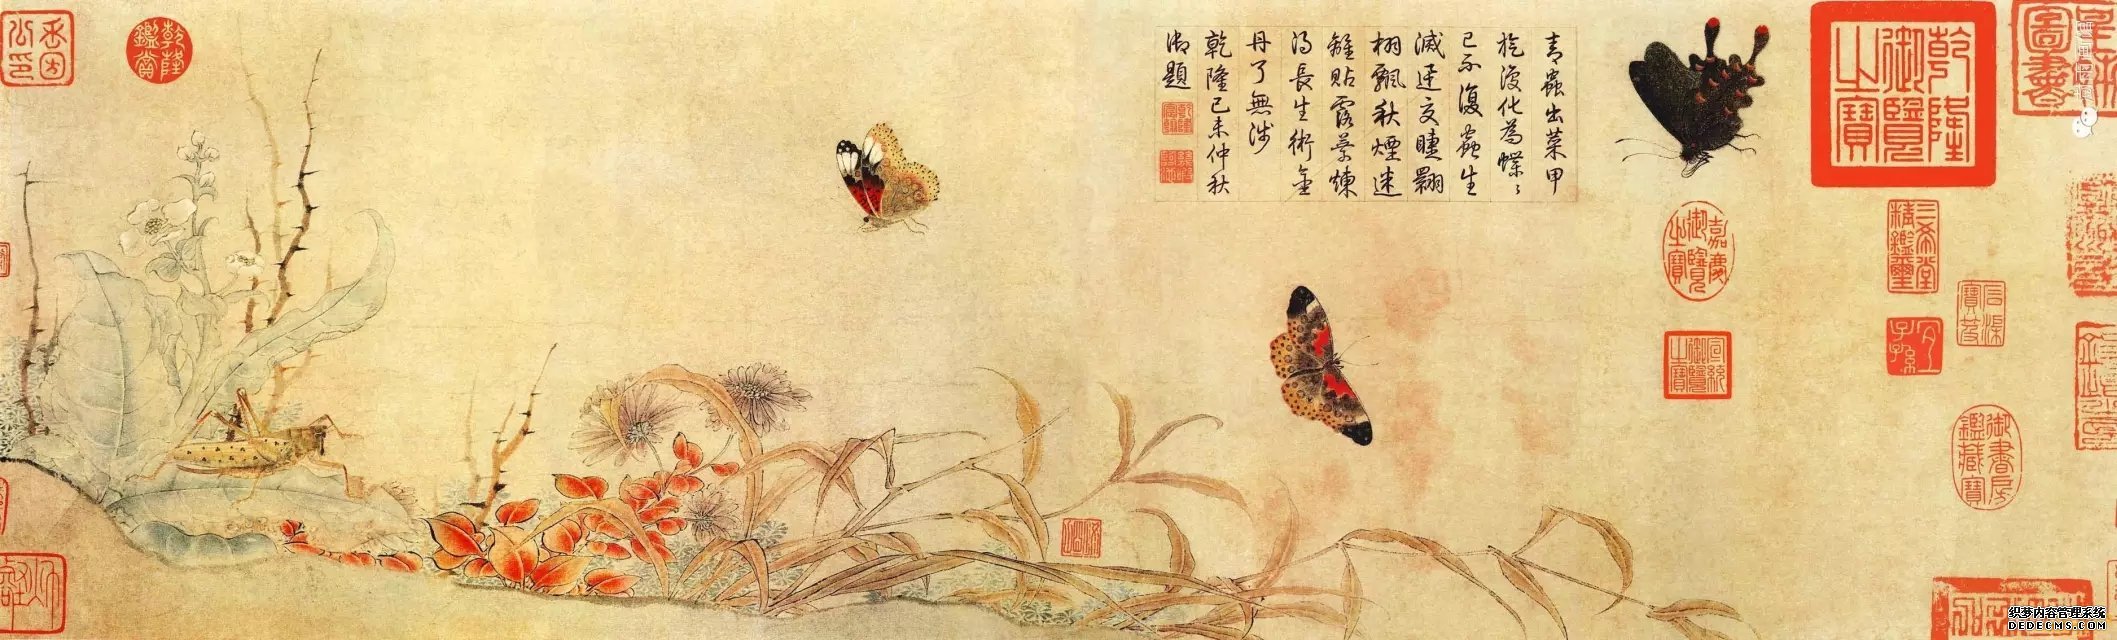 乾隆御覽之寶
三希堂精鑑璽
宜子孫
石渠寶笈
御書房鑑藏寶
嘉慶御覽之寶
宣統御覽之寶
青蟲出菜甲
旋復化為蝶〻
已不復蟲生
滅遞交睫翾
栩飄秋煙迷
離貼露葉煉
得長生術金
丹了無涉
乾隆己未仲秋
御題
乾隆鑑賞
织梦内容管理系统
DEDECMS.COM